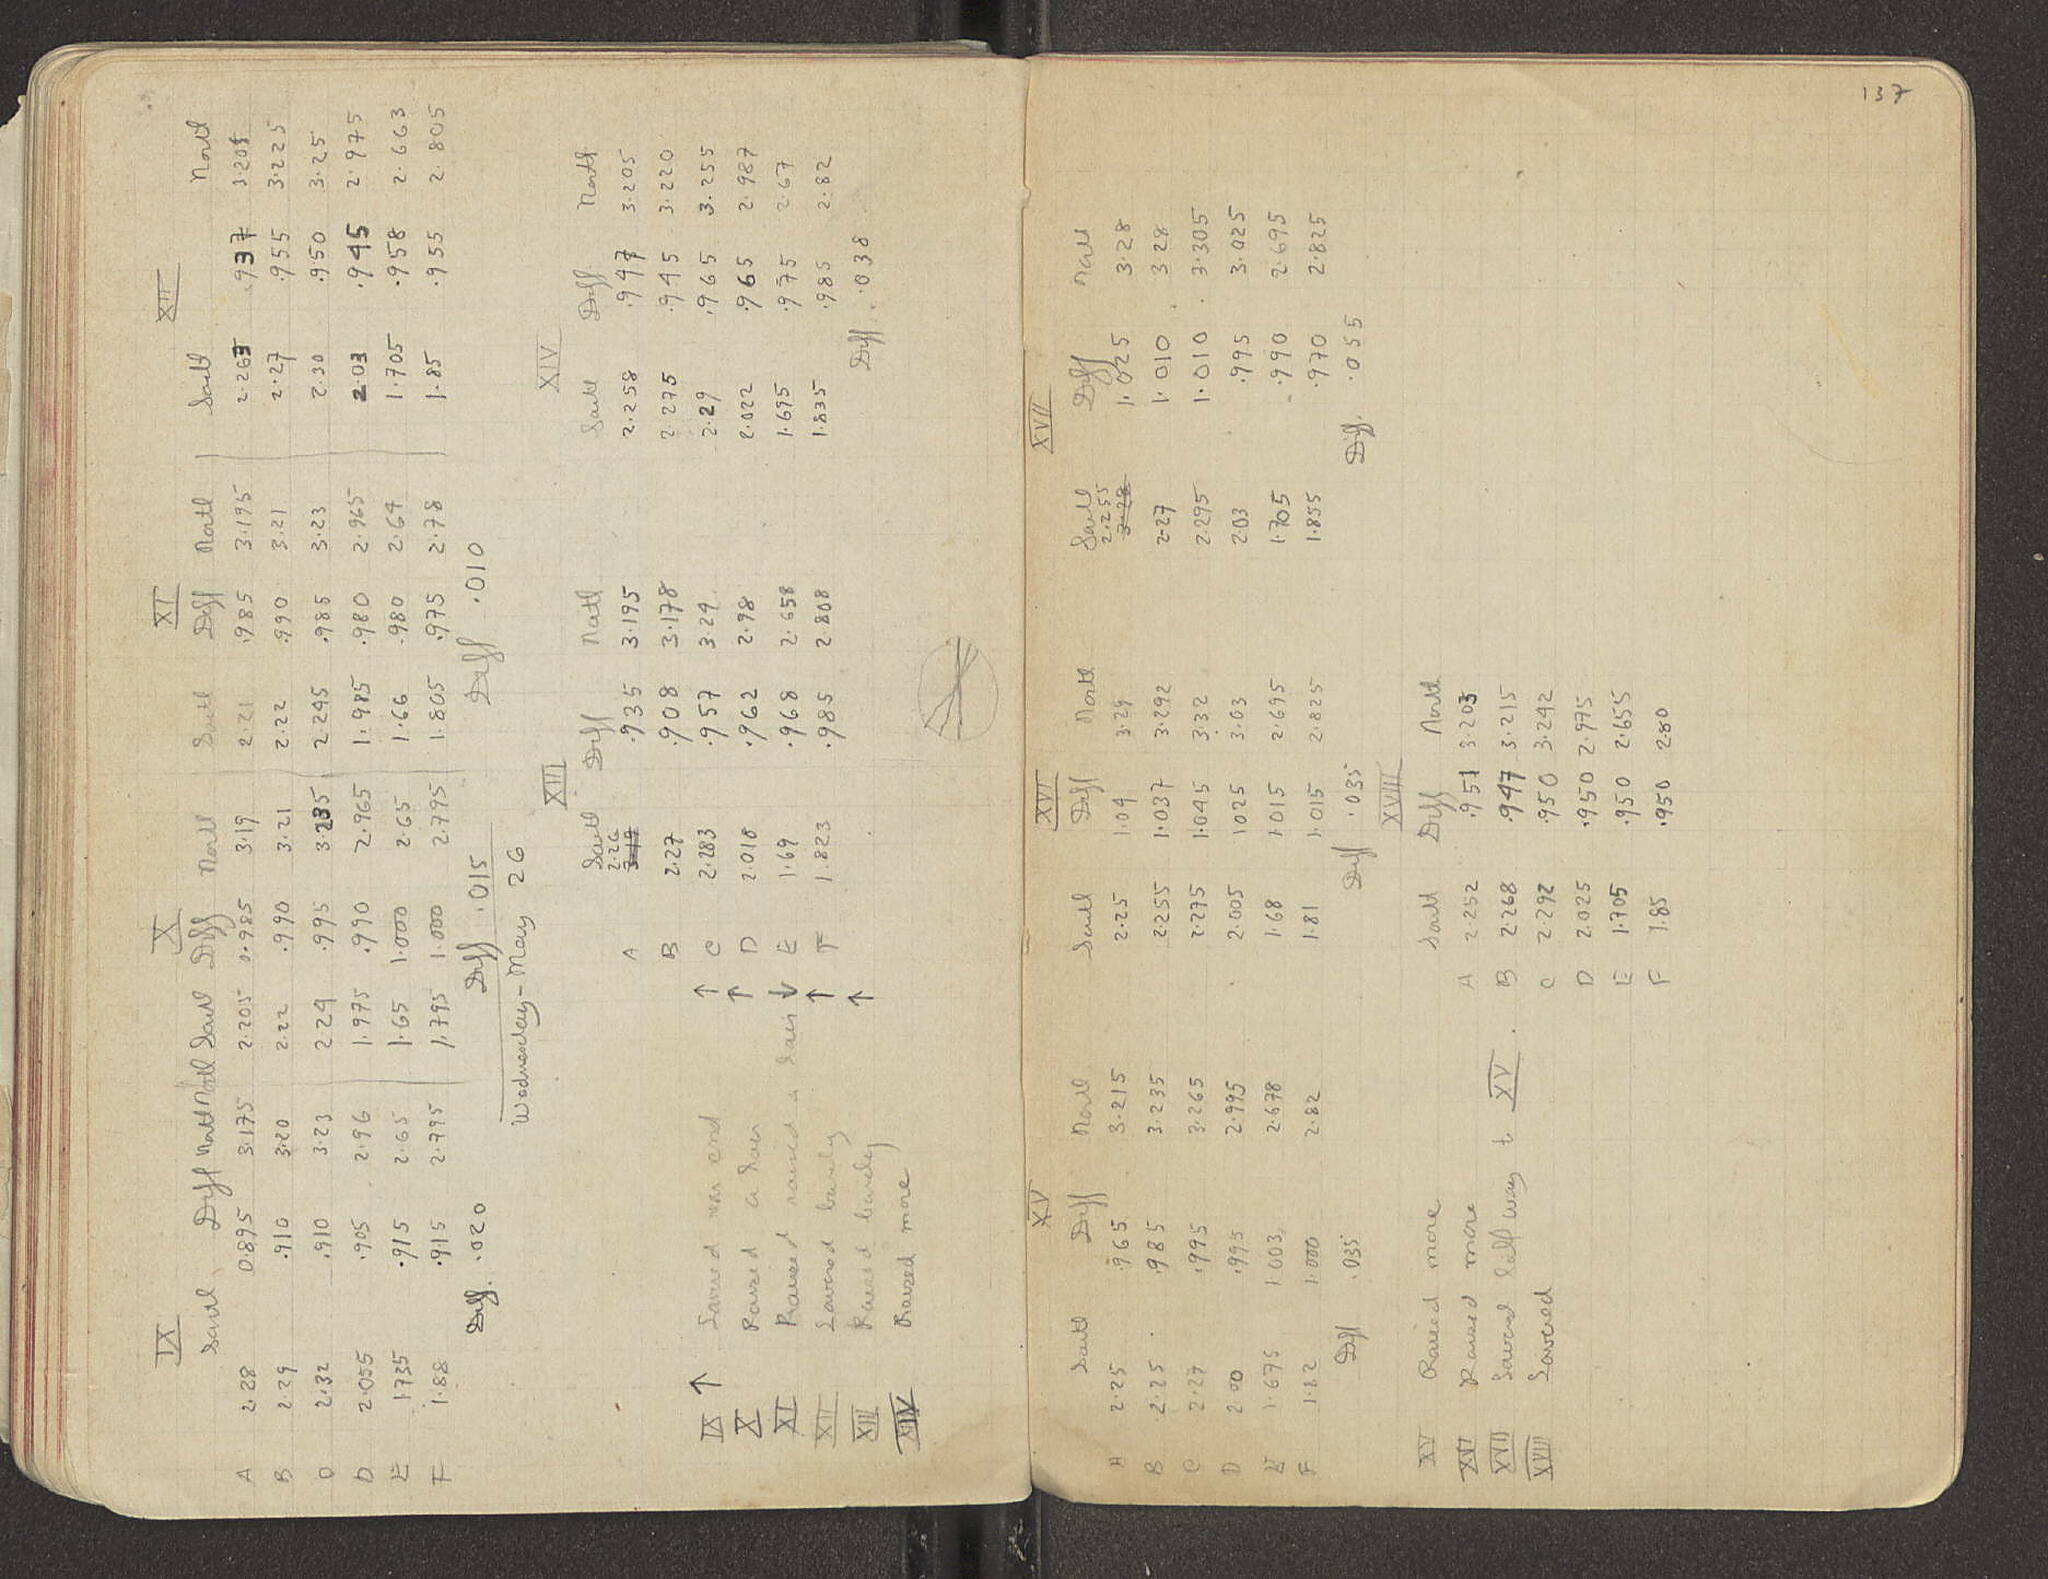 IX X XI XII
South Diff North South Diff North South Diff North South North
A 2.28 0.895 3.175 2.205 0.985 3.19 2.21 .985 3.195 2.263 .937
B 2.29 .910 3.20 2.22 .990 3.21 2.22 .990 3.21 2.27 .955 3.225
C 2.32 .910 3.23 2.24 .995 3.235 2.245 .985 3.23 2.30 .950 3.25
D 2.055 .905 2.96 1.975 .990 2.965 1.985 .980 2.965 2.03 .945 2.975
E 1.735 .915 2.65 1.65 1.000 2.65 1.66 .980 2.64 1.705 .958 2.663
F 1.88 .915 2.795 1.795 1.000 2.795 1.805 .975 2.78 1.85 .955 2.805
Diff. .020 Diff .015 Diff .010
Wednesday - May 26
XIII XIV
South Diff North South Diff North
2.26
A .935 3.195 2.258 .947 3.205
B 2.27 .908 3.178 2.275 .945 3.220
C 2.283 .957 3.24 2.29 .965 3.255
D 2.018 .962 2.98 2.022 .965 2.987
E 1.69 .968 2.658 1.695 .975 2.67
F 1.823 .985 2.808 1.835 .985 2.82
Diff. .038
IX ↑ near end ↑
X Raised a ↑
XI Raised raised a ↓
XII Lowered barely ↑
XIII Raised barely ↑
XIV Raised more
137
XV XVI XVII
South Diff North South Diff North South Diff North
2.255
A 2.25 .965 3.215 2.25 1.04 3.29 3.28 1.025 3.28
B 2.25 .985 3.235 2.255 1.037 3.292 2.27 1.010 3.28
C 2.27 .995 3.265 2.275 1.045 3.32 2.295 1.010 3.305
D 2.00 .995 2.995 2.005 1025 3.03 2.03 .995 3.025
E 1.675 1.003 2.678 1.68 1.015 2.695 1.705 .990 2.695
F 1.82 1.000 2.82 1.81 1.015 2.825 1.855 .970 2.825
Diff .035 Diff .035 Diff. .055
XVIII
South Diff North
A 2.252 .951 3.203
B 2.268 .947 3.215
C 2.292 .950 3.242
D 2.025 .950 2.975
E 1.705 .950 2.655
F 1.85 .950 2.80
XV Raised more
XVI Raised more
XVII Lowered half way to XV.
XVIII Lowered